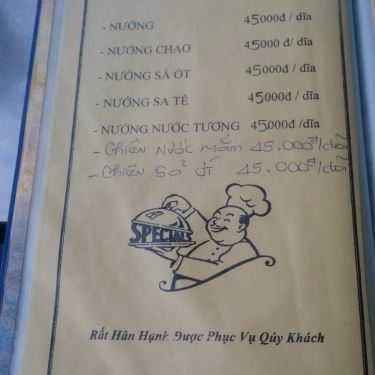 - NƯỚNG 45000đ / dĩa
- NƯỚNG CHAO 45000 đ/ dĩa
- NƯỚNG SẢ ỚT 45000đ / dĩa
- NƯỚNG SA TẾ 45000đ / dĩa
- NƯỚNG NƯỚC TƯƠNG 45000đ /dĩa
- Chiên Nước mắm 45.000đ/dĩa
- Chiên Sả ớt 45.000đ/dĩa
SPECIALS
Rất Hân Hạnh Được Phục Vụ Qúy Khách